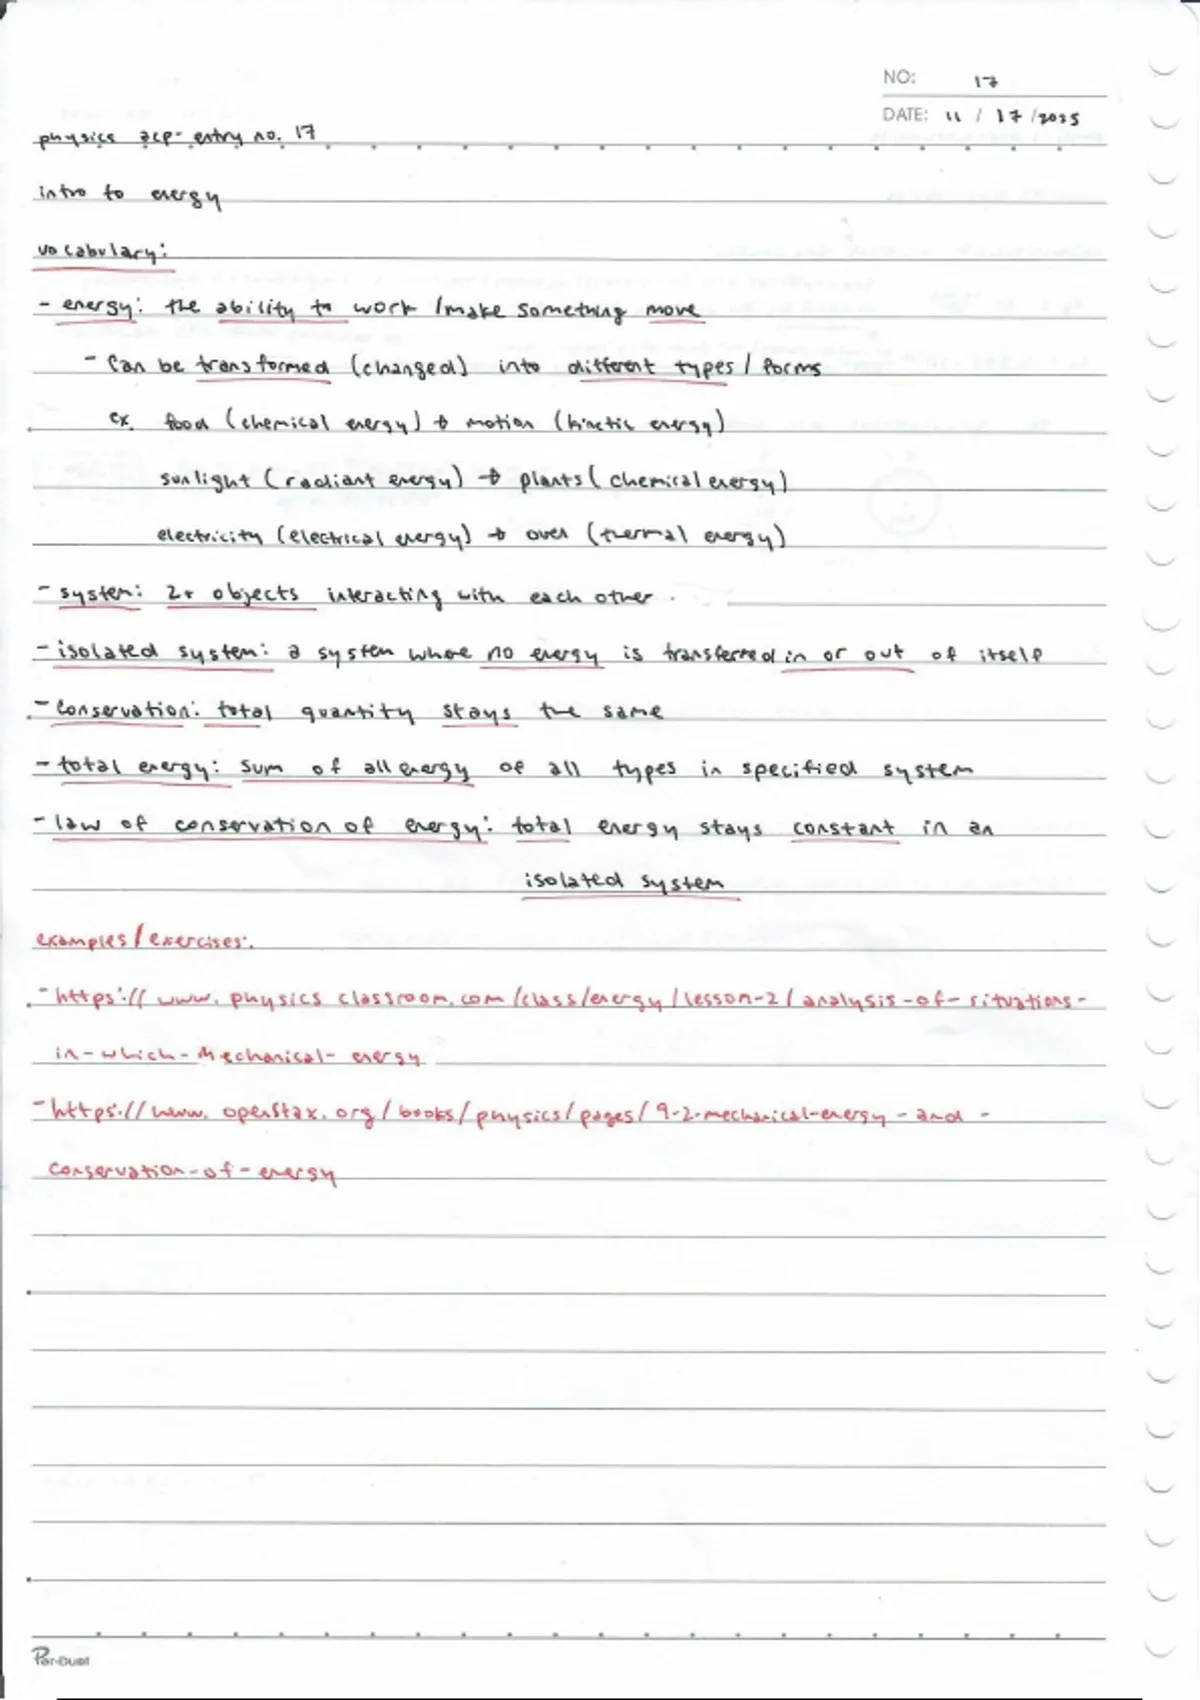 NO: 17
DATE: 11 / 17 / 2025
physics acp- entry no. 17
intro to energy
vocabulary:
- energy: the ability to work / make something move
- can be transformed (changed) into different types / forms
ex. food (chemical energy) → motion (kinetic energy)
sunlight (radiant energy) → plants (chemical energy)
electricity (electrical energy) → oven (thermal energy)
- system: 2+ objects interacting with each other.
- isolated system: a system where no energy is transferred in or out of itself
- conservation: total quantity stays the same
- total energy: sum of all energy of all types in specified system
- law of conservation of energy: total energy stays constant in an
isolated system
examples/exercises:
- https://www.physicsclassroom.com/class/energy/lesson-2/analysis-of-situations-
in-which-mechanical-energy
- https://www.openstax.org/books/physics/pages/9-2-mechanical-energy-and-
conservation-of-energy